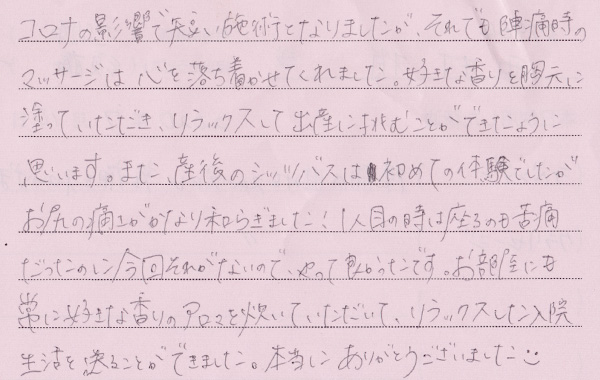 コロナの影響で短い施術となりましたが、それでも陣痛時の
マッサージは心を落ち着かせてくれました。好きな香りを胸元に
塗っていただき、リラックスして出産に挑むことができたように
思います。また、産後のシッツバスは初めての体験でしたが
お尻の痛さがかなり和らぎました！1人目の時は座るのも苦痛
だったのに今回それがないので、やって良かったです。お部屋にも
常に好きな香りのアロマを炊いていただいて、リラックスした入院
生活を送ることができました。本当にありがとうございました